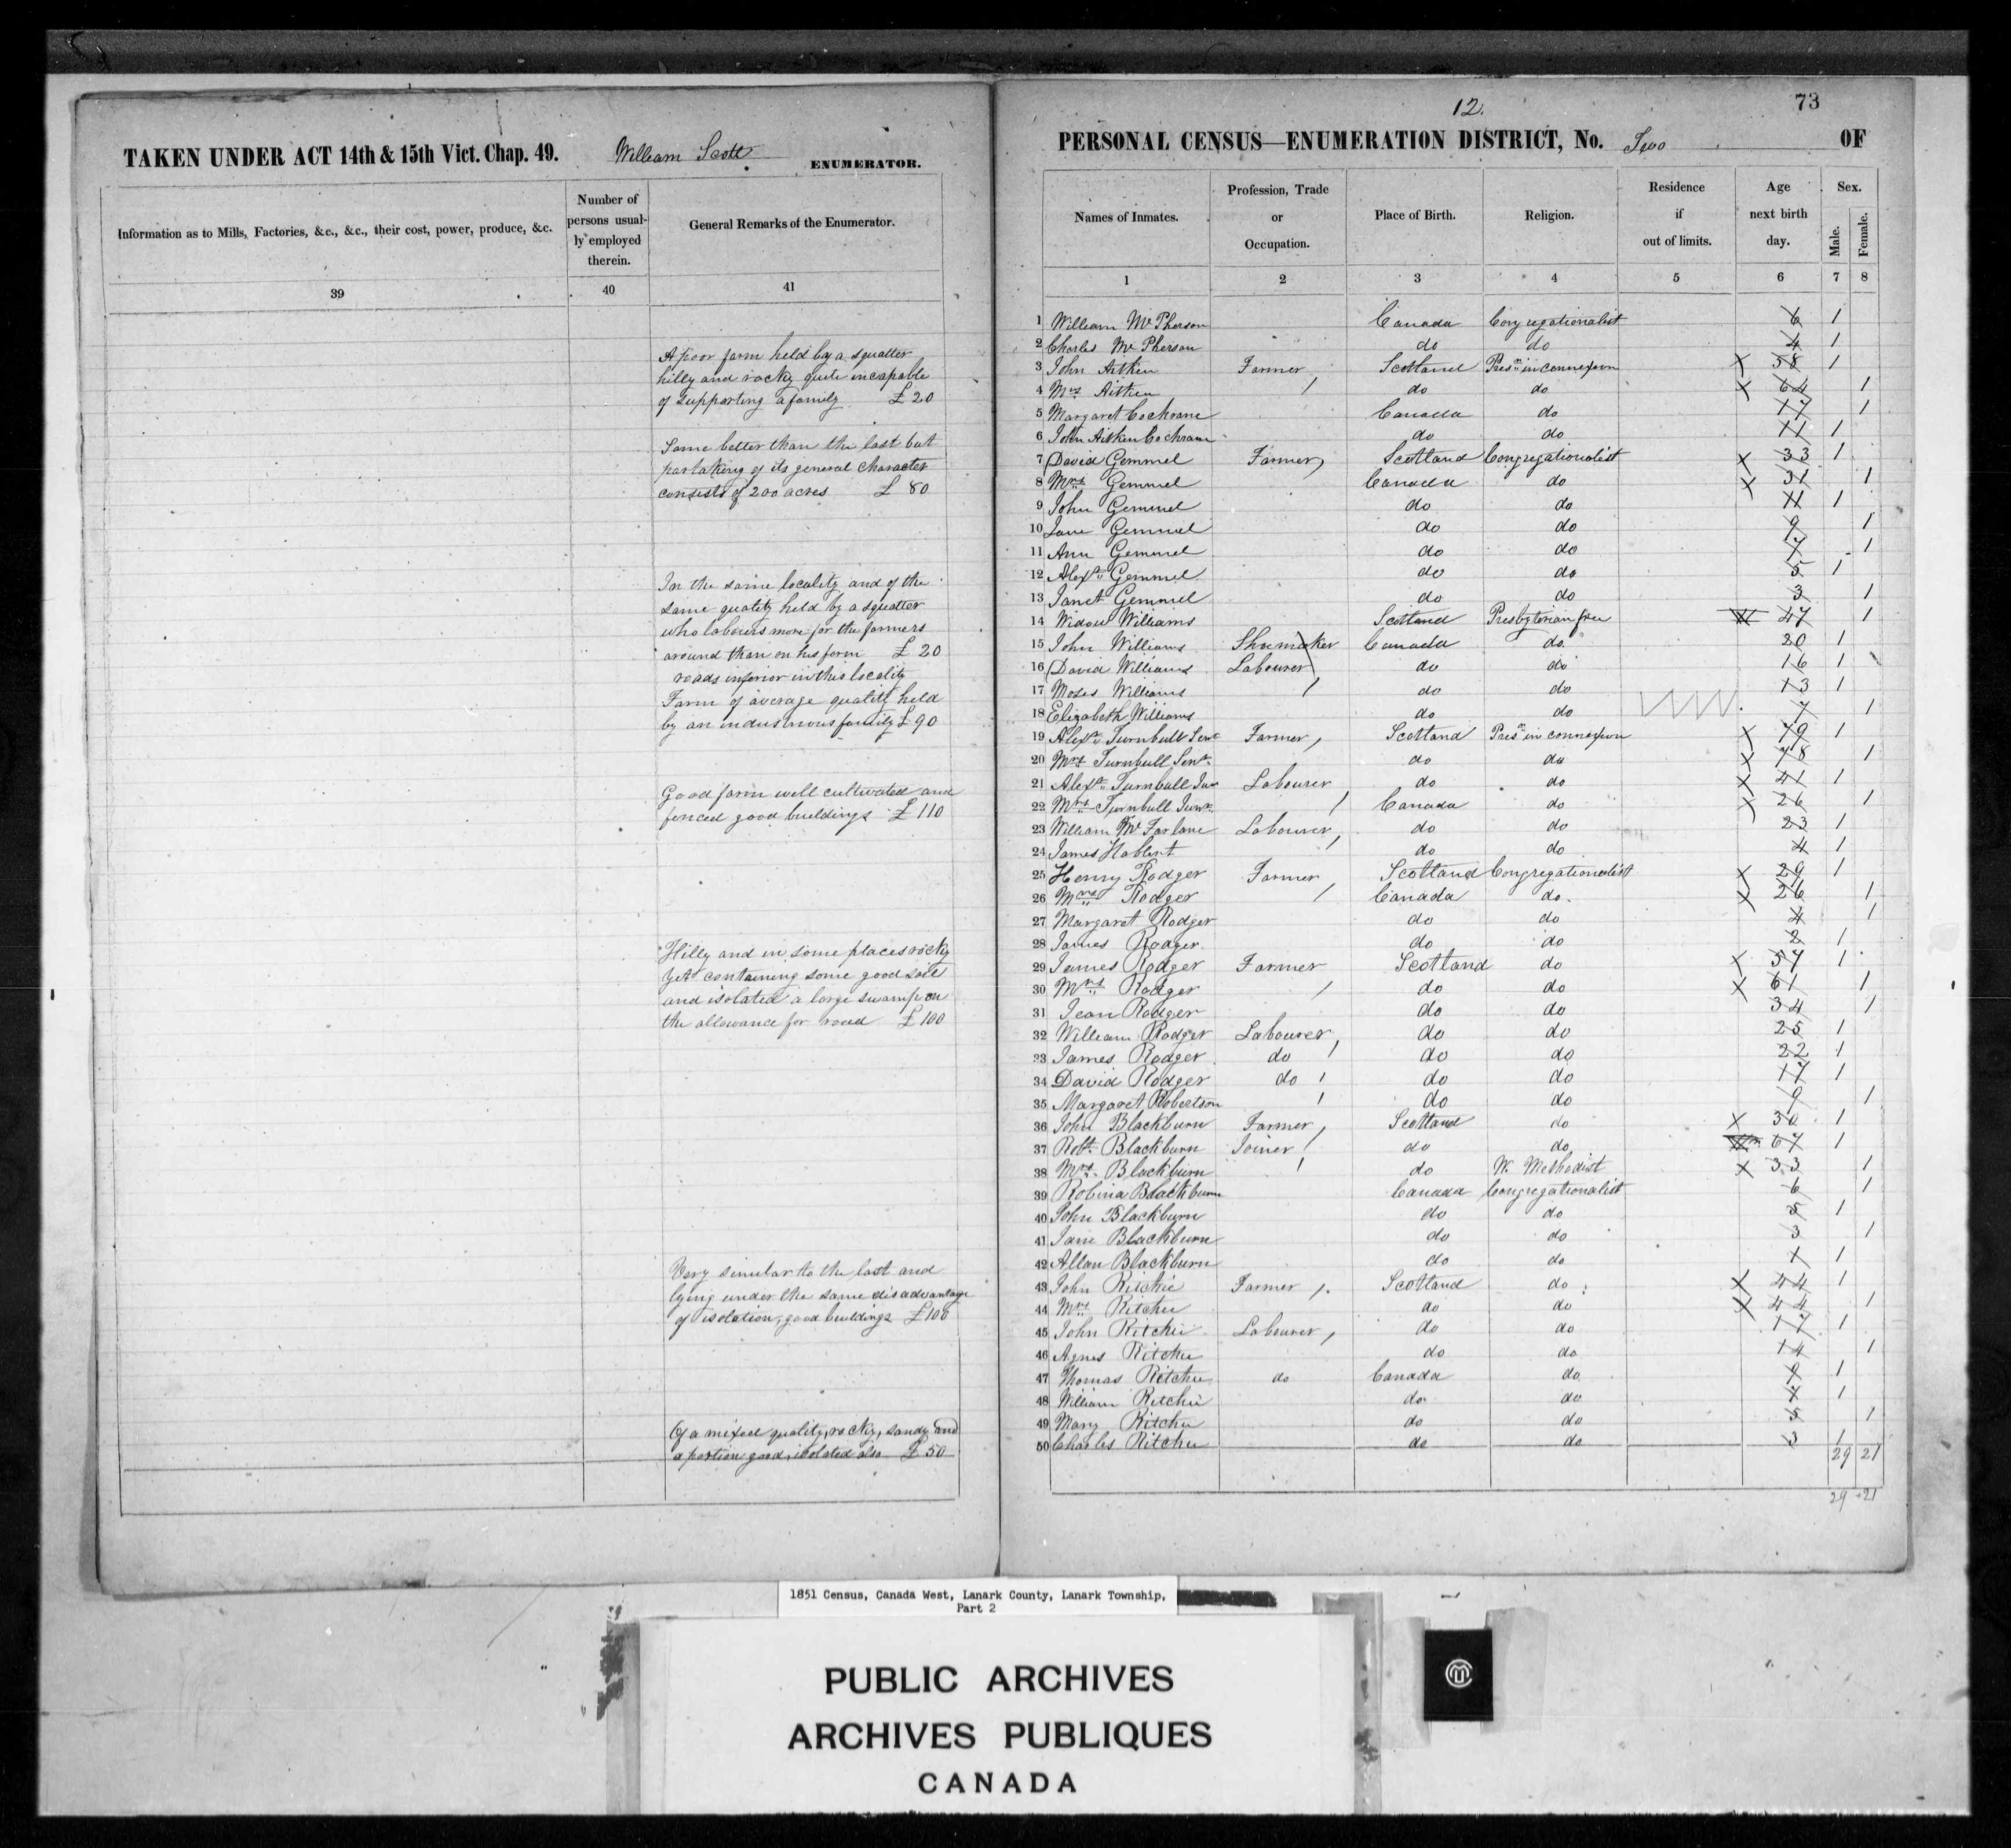 TAKEN UNDER ACT 14th & 15th Vict. Chap. 49. William Scott ENUMERATOR.
Information as to Mills, Factories, &c., &c., their cost, power, produce, &c.
Number of persons usual-ly employed therein.
General Remarks of the Enumerator.
39 40 41
A poor farm held by a squatter
hilly and rocky quite incapable
of supporting a family £20
Some better than the last but
partaking of its general character
consists of 200 acres £80
In the same locality and of the
same quality held by a squatter
who labours more for the farmers
around than on his farm £20
roads inferior in this locality
Farm of average quality held
by an industrious family £90
Good farm well cultivated and
fenced good buildings £110
Hilly and in some places rocky
yet containing some good soil
and isolated a large swamp on
the allowance for road £100
Very similar to the last and
lying under the same disadvantage
of isolation, good buildings £100
Of a mixed quality, rocky, sandy and
a portion good, isolated also £50
12. 73
PERSONAL CENSUS—ENUMERATION DISTRICT, No. Two OF
Names of Inmates.
Profession, Trade or Occupation.
Place of Birth.
Religion.
Residence if out of limits.
Age next birth day.
Sex.
Male. Female.
1 2 3 4 5 6 7 8
1 William McPherson Canada Congregationalist 6 1
2 Charles McPherson do do 4 1
3 John Aitken Farmer Scotland Presn in connexion x 58 1
4 Mrs Aitken do do x 64 1
5 Margaret Cochrane Canada do 17 1
6 John Aitken Cochrane do do 11 1
7 David Gemmel Farmer, Scotland Congregationalist x 33 1
8 Mrs Gemmel Canada do x 31 1
9 John Gemmel do do 11 1
10 Jane Gemmel do do 9 1
11 Ann Gemmel do do 7 1
12 Alexr Gemmel do do 5 1
13 Janet Gemmel do do 3 1
14 Widow Williams Scotland Presbyterian free 47 1
15 John Williams Shoemaker Canada do. 20 1
16 David Williams Labourer do do 16 1
17 Moses Williams do do 13 1
18 Elizabeth Williams do do 7 1
19 Alexr Turnbull Senr Farmer, Scotland Presn in connexion x 79 1
20 Mrs Turnbull Senr. do do x 78 1
21 Alexr Turnbull Junr Labourer do do x 41 1
22 Mrs Turnbull Junr. Canada do x 26 1
23 William McFarlane Labourer, do do 23 1
24 James do do 4 1
25 Henry Rodger Farmer Scotland Congregationalist x 29 1
26 Mrs Rodger Canada do. x 26 1
27 Margaret Rodger do do 4 1
28 James Rodger do do 2 1
29 James Rodger Farmer Scotland do x 57 1
30 Mrs Rodger do do x 61 1
31 Jean Rodger do do 34 1
32 William Rodger Labourer, do do 25 1
33 James Rodger do do do 22 1
34 David Rodger do do do 17 1
35 Margaret Robertson do do 9 1
36 John Blackburn Farmer, Scotland do x 30 1
37 Robt Blackburn Joiner do do 67 1
38 Mrs. Blackburn do W. Methodist x 33 1
39 Robina Blackburn Canada Congregationalist 6 1
40 John Blackburn do do 5 1
41 Jane Blackburn do do 3 1
42 Allan Blackburn do do 1 1
43 John Ritchie Farmer, Scotland do x 44 1
44 Mrs Ritchie do do x 44 1
45 John Ritchie Labourer, do do 17 1
46 Agnes Ritchie do do 14 1
47 Thomas Ritchie do Canada do. 9 1
48 William Ritchie do. do 7 1
49 Mary Ritchie do do 5 1
50 Charles Ritchie do do 3 1
29 21
29 21
1851 Census, Canada West, Lanark County, Lanark Township,
Part 2
PUBLIC ARCHIVES
ARCHIVES PUBLIQUES
CANADA